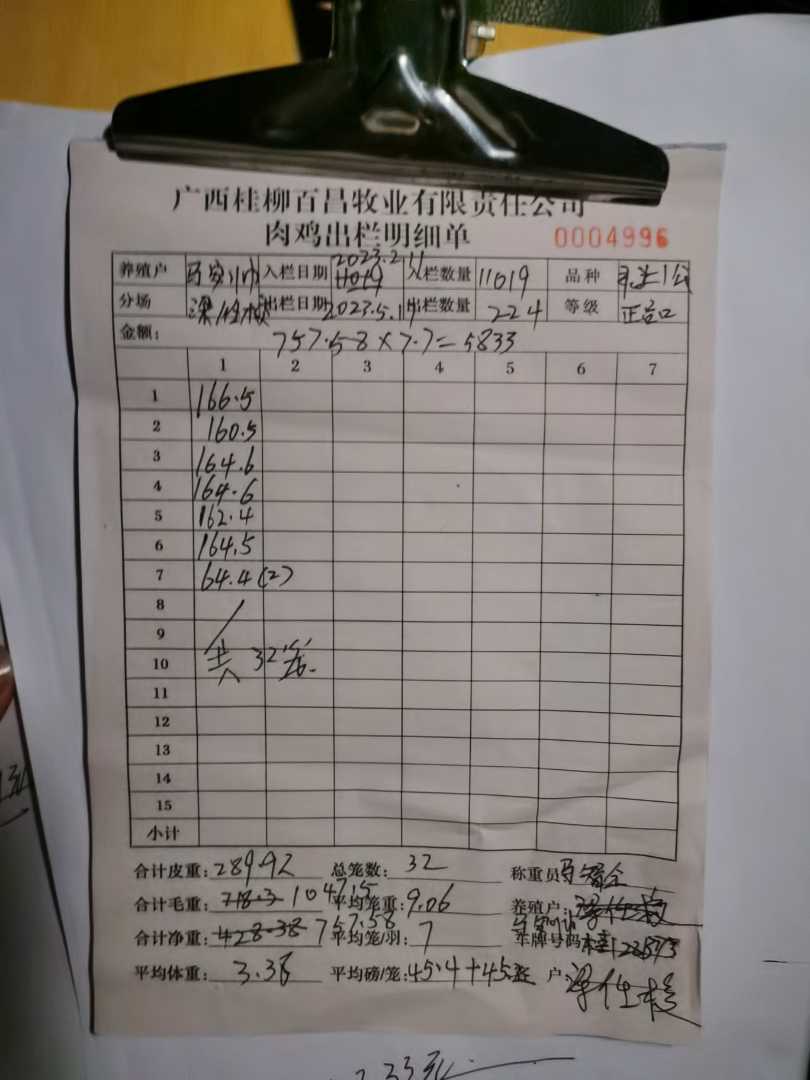 广西桂柳百昌牧业有限责任公司
肉鸡出栏明细单 0004996
养殖户 入栏日期 2023.2.11 11019 入栏数量 11019 品种
分场 出栏日期 2023.5.1 出栏数量 224 等级 正品
金额: 757.58×7.7=5833
1 2 3 4 5 6 7
1 166.5
2 160.5
3 164.6
4 164.6
5 162.4
6 164.5
7 64.4(2)
8
9
10 共32笼
11
12
13
14
15
小计
合计皮重: 289.92 总笼数: 32 称重员
合计毛重: 718.3 1047.5 平均笼重: 9.06 养殖户:
合计净重: 428.38 757.58 平均笼/羽: 7 车牌号码
平均体重: 3.38 平均磅/笼: 45.4+45 户: